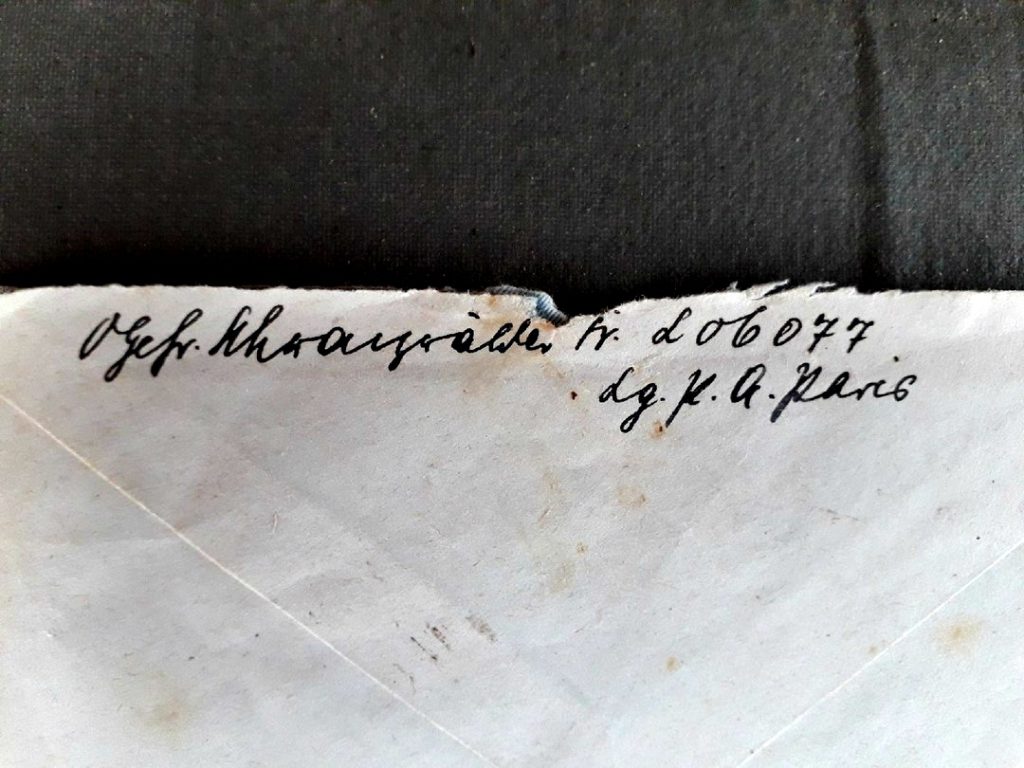 OGefr. Schwarzwälder Nr. L 06077
Lg. P. A. Paris